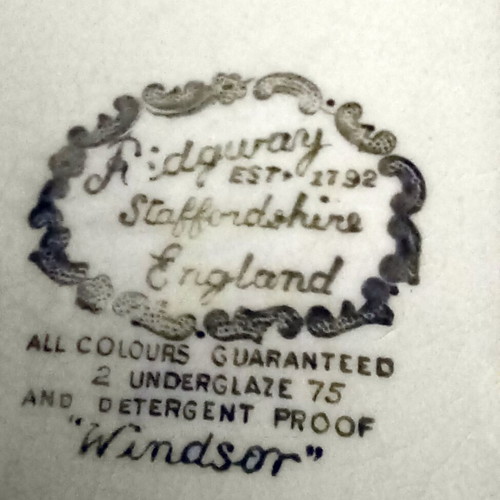 Ridgway
EST. 1792
Staffordshire
England
ALL COLOURS GUARANTEED
2 UNDERGLAZE 75
AND DETERGENT PROOF
"Windsor"